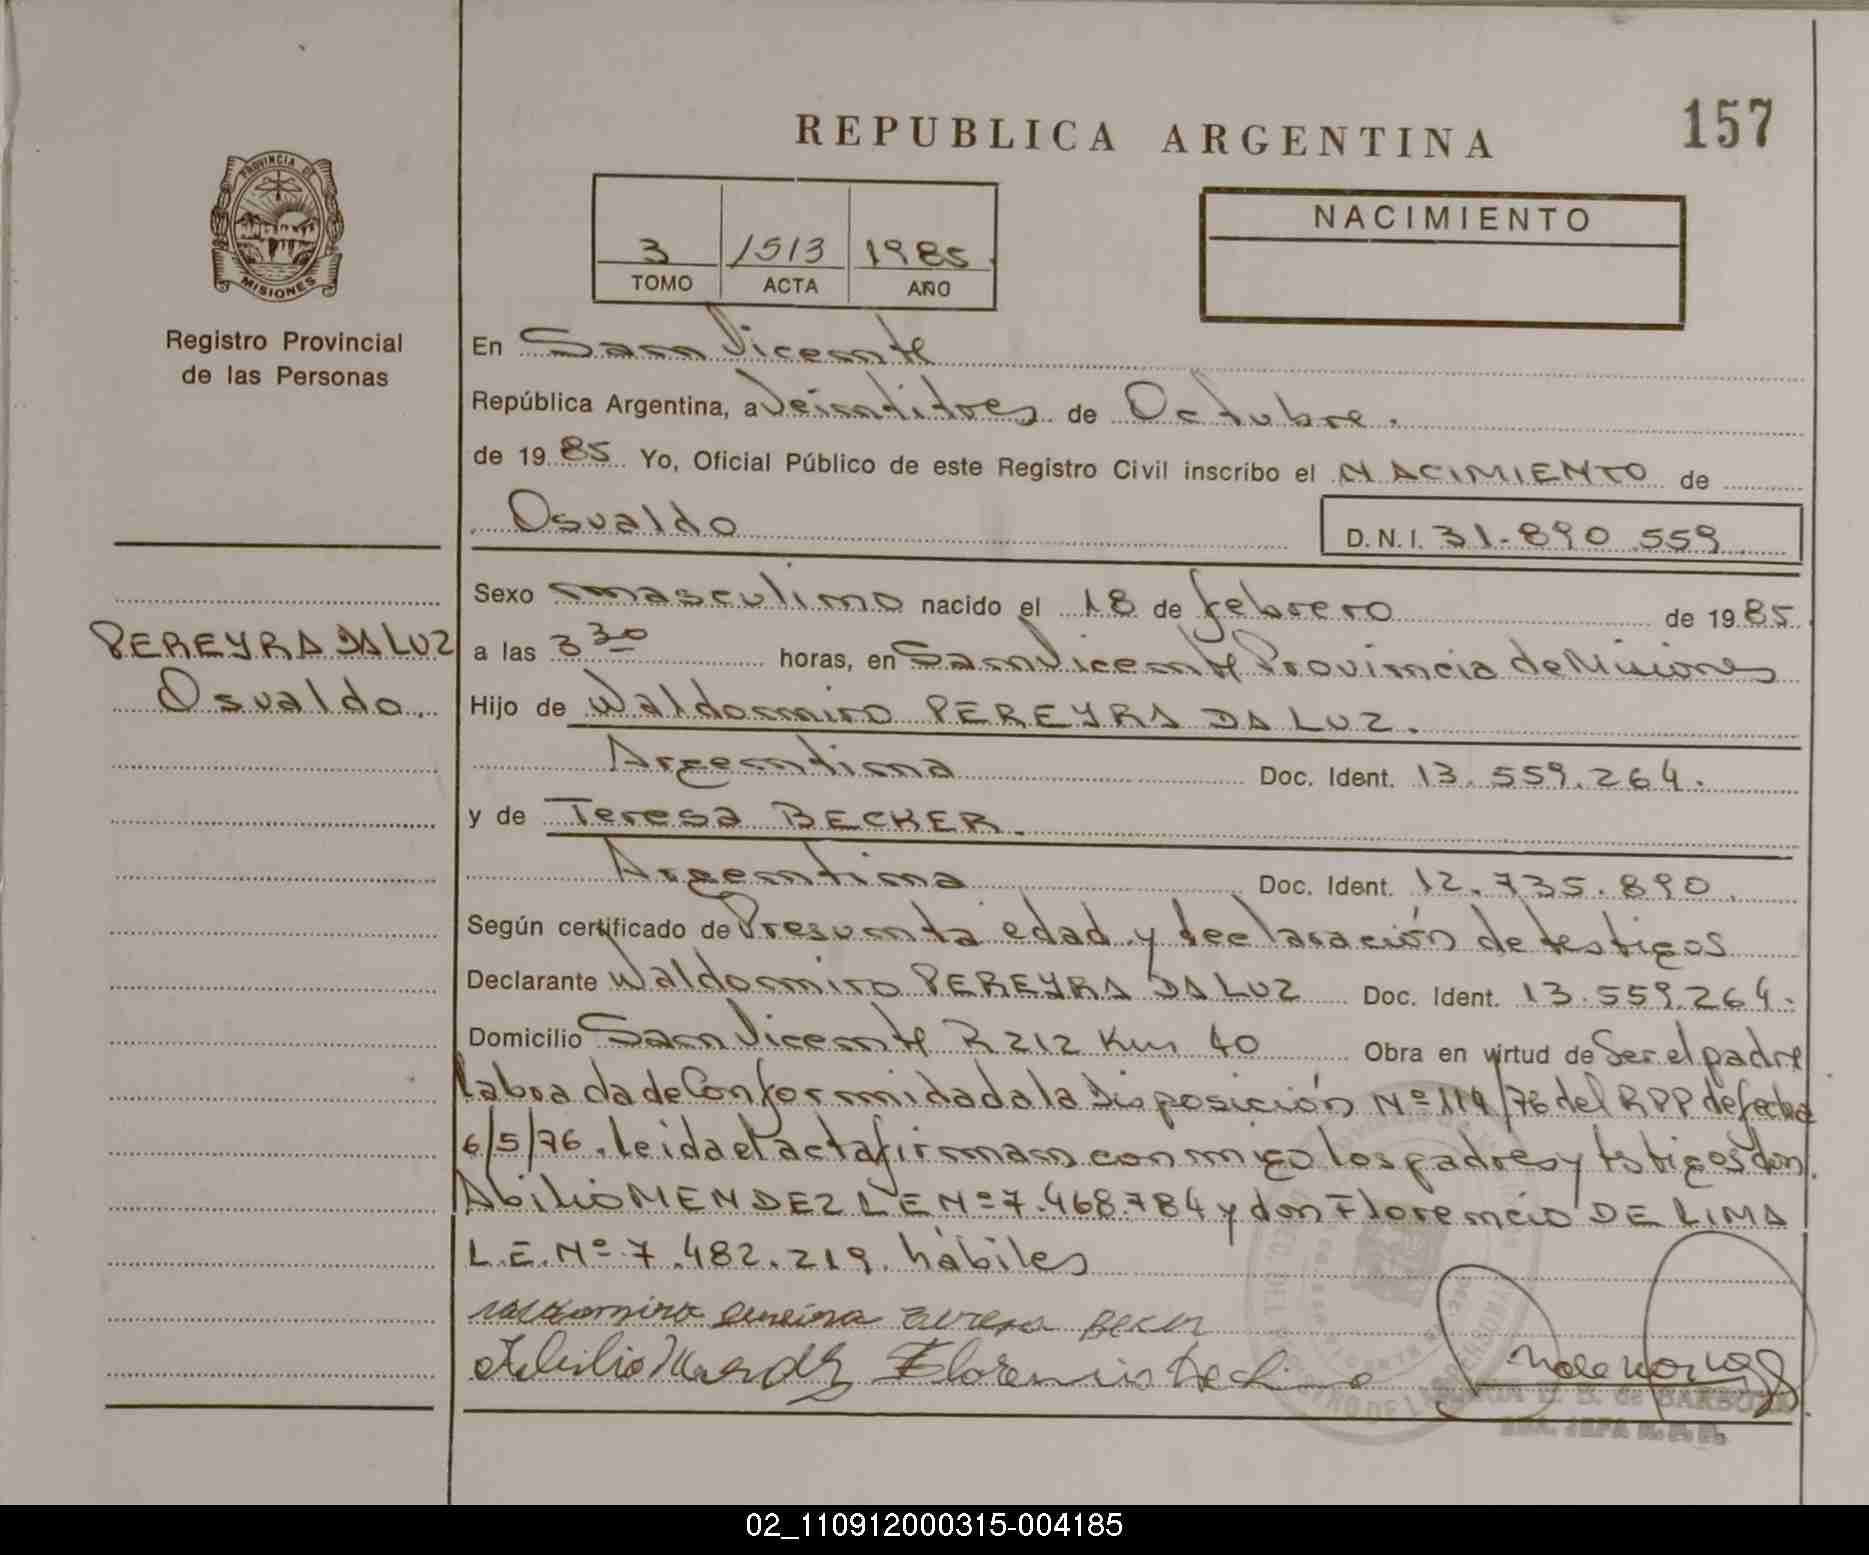 157
REPUBLICA ARGENTINA
PROVINCIA DE
MISIONES
Registro Provincial
de las Personas
3 1513 1985
TOMO ACTA AÑO
NACIMIENTO
En San Vicente
República Argentina, a Veintitres de Octubre.
de 1985 Yo, Oficial Público de este Registro Civil inscribo el NACIMIENTO de
Osvaldo
D.N.I. 31.890.559
PEREYRA DA LUZ
Osvaldo.
Sexo masculino nacido el 18 de febrero de 1985.
a las 3 30 horas, en San Vicente Provincia de Misiones
Hijo de Waldomiro PEREYRA DA LUZ.
Argentina Doc. Ident. 13.559.264.
y de Teresa BECKER.
Argentina Doc. Ident. 12.735.890.
Según certificado de Presunta edad y declaración de testigos
Declarante Waldomiro PEREYRA DA LUZ Doc. Ident. 13.559.264.
Domicilio San Vicente R 212 Km 40 Obra en virtud de Ser el padre
labrada de Conformidad a la Disposición Nº 114/76 del RPP de fecha
6/5/76. leida el acta firman conmigo los padres y tstigos don
Abilio MENDEZ L E Nº 7.468.784 y don Florencio DE LIMA
L.E. Nº 7.482.219. hábiles
Abilio Mendez Florencio de Lima
de BARBOZA
JEFA R.P.P.
02_110912000315-004185